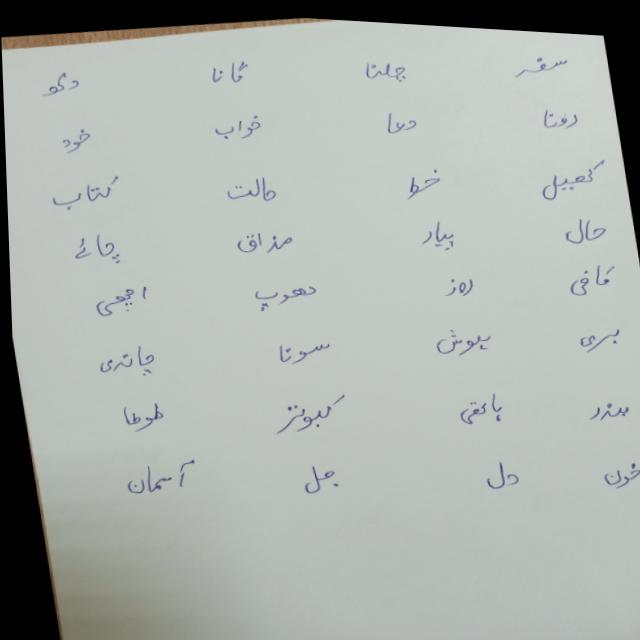 سفر چلنا گانا دکھ
رونا دعا خواب خود
کھیل خط حالت کتاب
حال پیار مذاق چائے
کافی روز دھوپ اچھی
بری ہوش سونا چاندی
ہاتھی کبوتر طوطا
خون دل جل آسمان